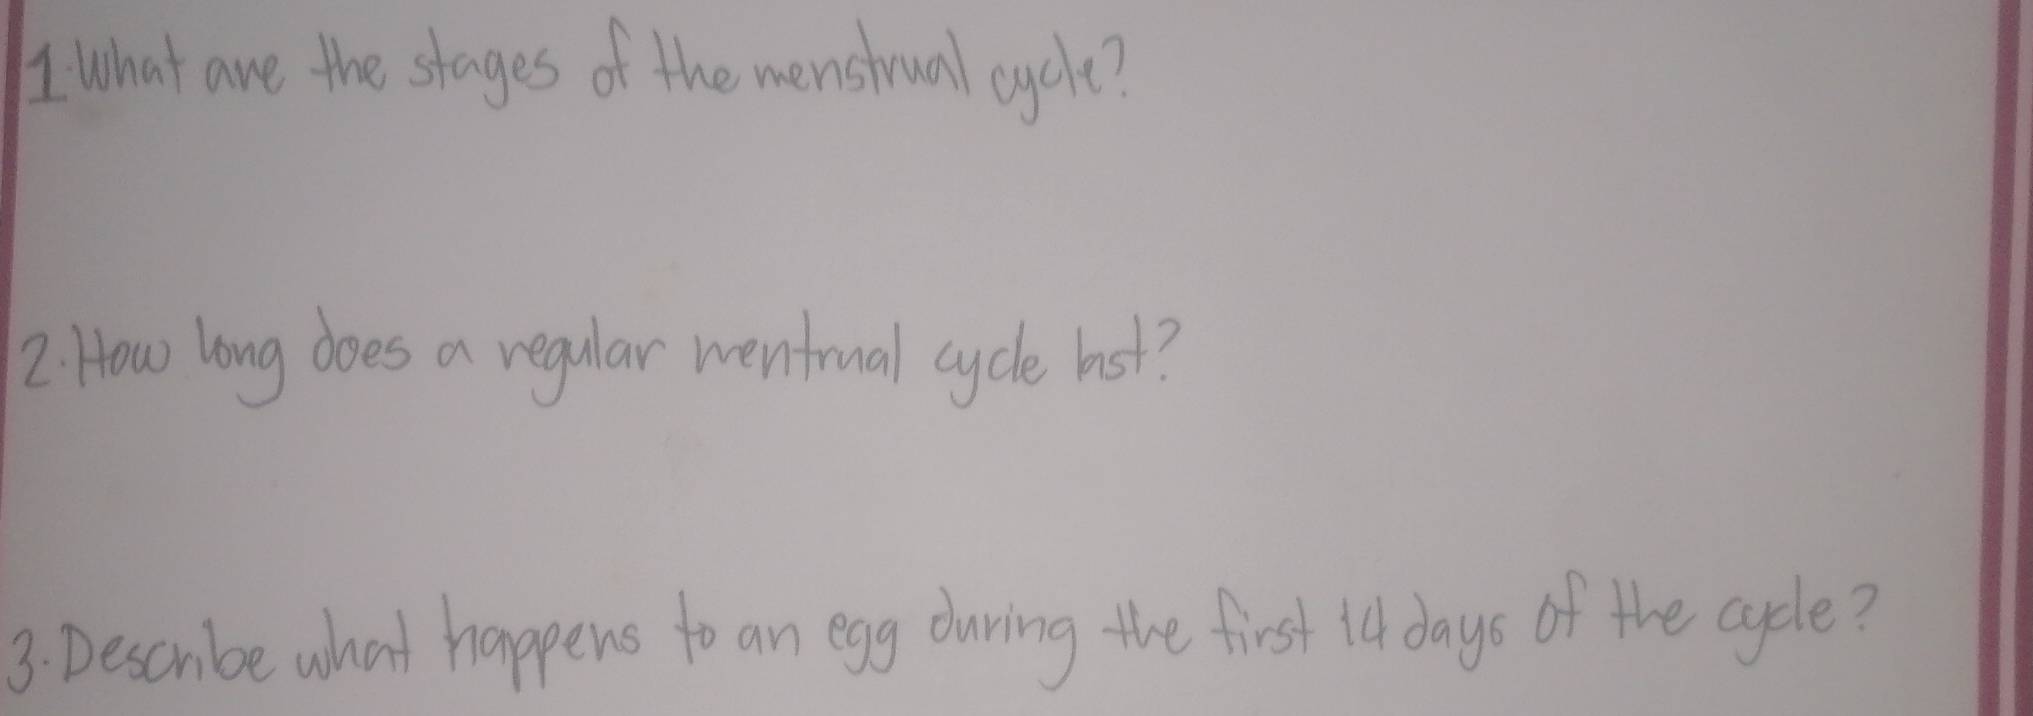 1. What are the stages of the menstrual cycle?
2. How long does a regular mentrual cycle last?
3. Describe what happens to an egg during the first 14 days of the cycle?